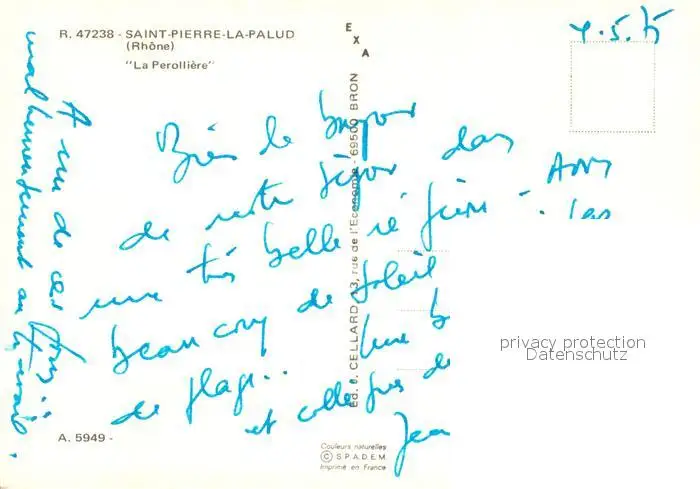 R. 47238 - SAINT-PIERRE-LA-PALUD
(Rhône)
"La Perollière"
EXA
4.5.75
Bien le bonjour
de notre séjour dans
une très belle région
beaucoup de soleil
de plage..
et collègues de
Jean
A un de ces jours
malheureusement au travail.
Ed. E. CELLARD 13, rue de l'Economie - 69500 BRON
privacy protection
Datenschutz
A. 5949 -
Couleurs naturelles
© S.P.A.D.E.M.
Imprimé en France